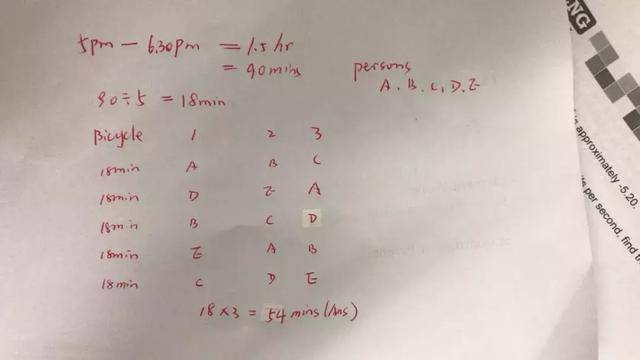 5pm – 6.30pm = 1.5 hr
= 90 mins
persons
A. B. C, D. E
90 ÷ 5 = 18min
Bicycle 1 2 3
18min A B C
18min D E A
18min B C D
18min E A B
18min C D E
18 × 3 = 54 mins (Ans)
NG
approximately -5.20.
per second, find